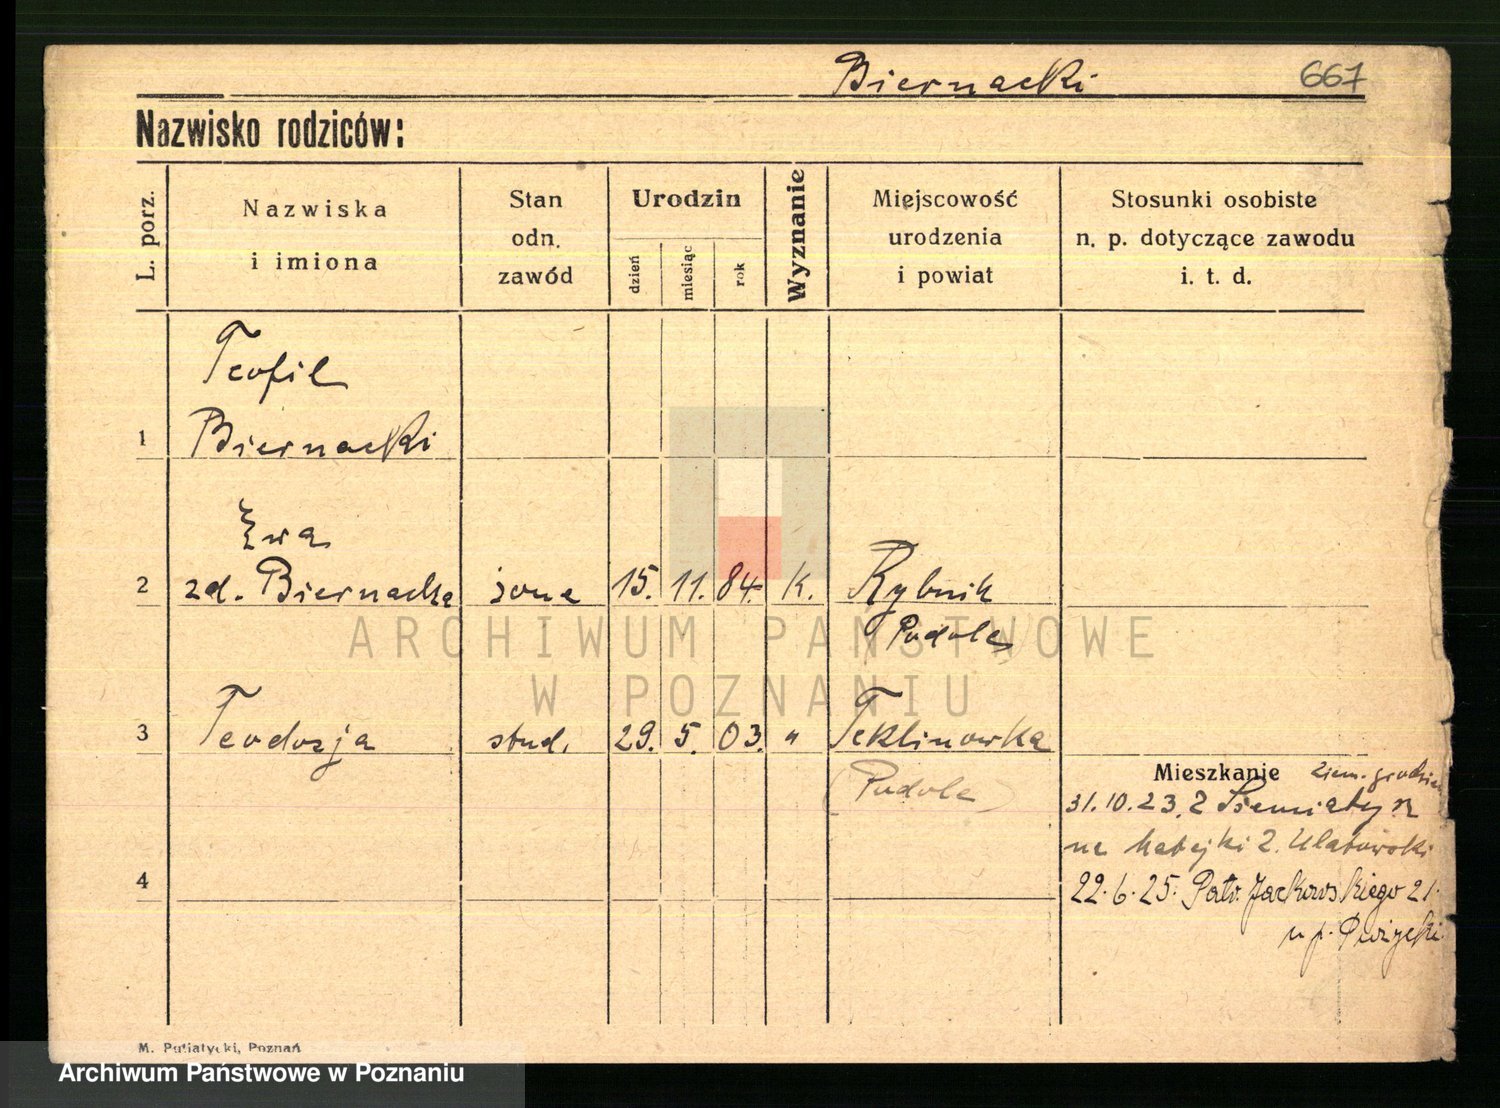 Biernacki 667
Nazwisko rodziców:
L. porz.
Nazwiska
i imiona
Stan
odn.
zawód
Urodzin
dzień
miesiąc
rok
Wyznanie
Miejscowość
urodzenia
i powiat
Stosunki osobiste
n. p. dotyczące zawodu
i. t. d.
Teofil
1 Biernacki
Ewa
2 zd. Biernacka żona 15. 11. 84. K. Rybnik
Podole
ARCHIWUM PAŃSTWOWE
W POZNANIU
3 Teodozja stud. 29. 5. 03. " Teklinowka
(Podole)
Mieszkanie
31. 10. 23. z
na Matejki 2. Ulatowski
4
22. 6. 25. Patr. Jackowskiego 21.
u p.
M. Putiatycki, Poznań
Archiwum Państwowe w Poznaniu